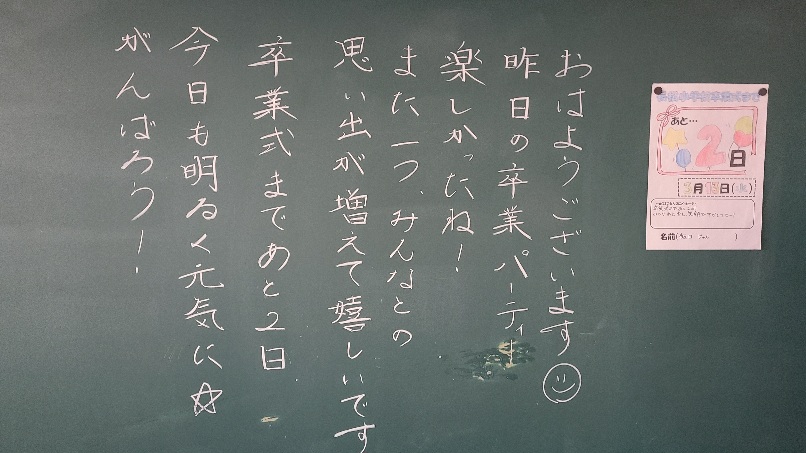 おはようございます
昨日の卒業パーティー
楽しかったね!
また一つ、みんなとの
思い出が増えて嬉しいです
卒業式まであと2日
今日も明るく元気に☆
がんばろう!
あと…
2日
月 日(火)
名前( )